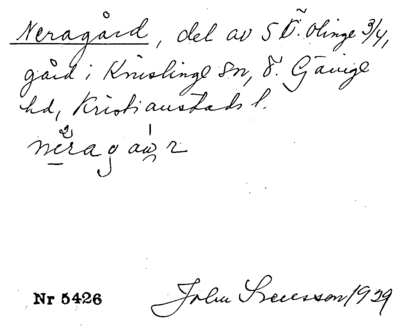 Neragård, del av 5 Ö. Olinge 3/4,
gård i Knislinge sn, Ö. Göinge
hd, Kristianstads l.
neraga
Nr 5426 John Svensson 1929